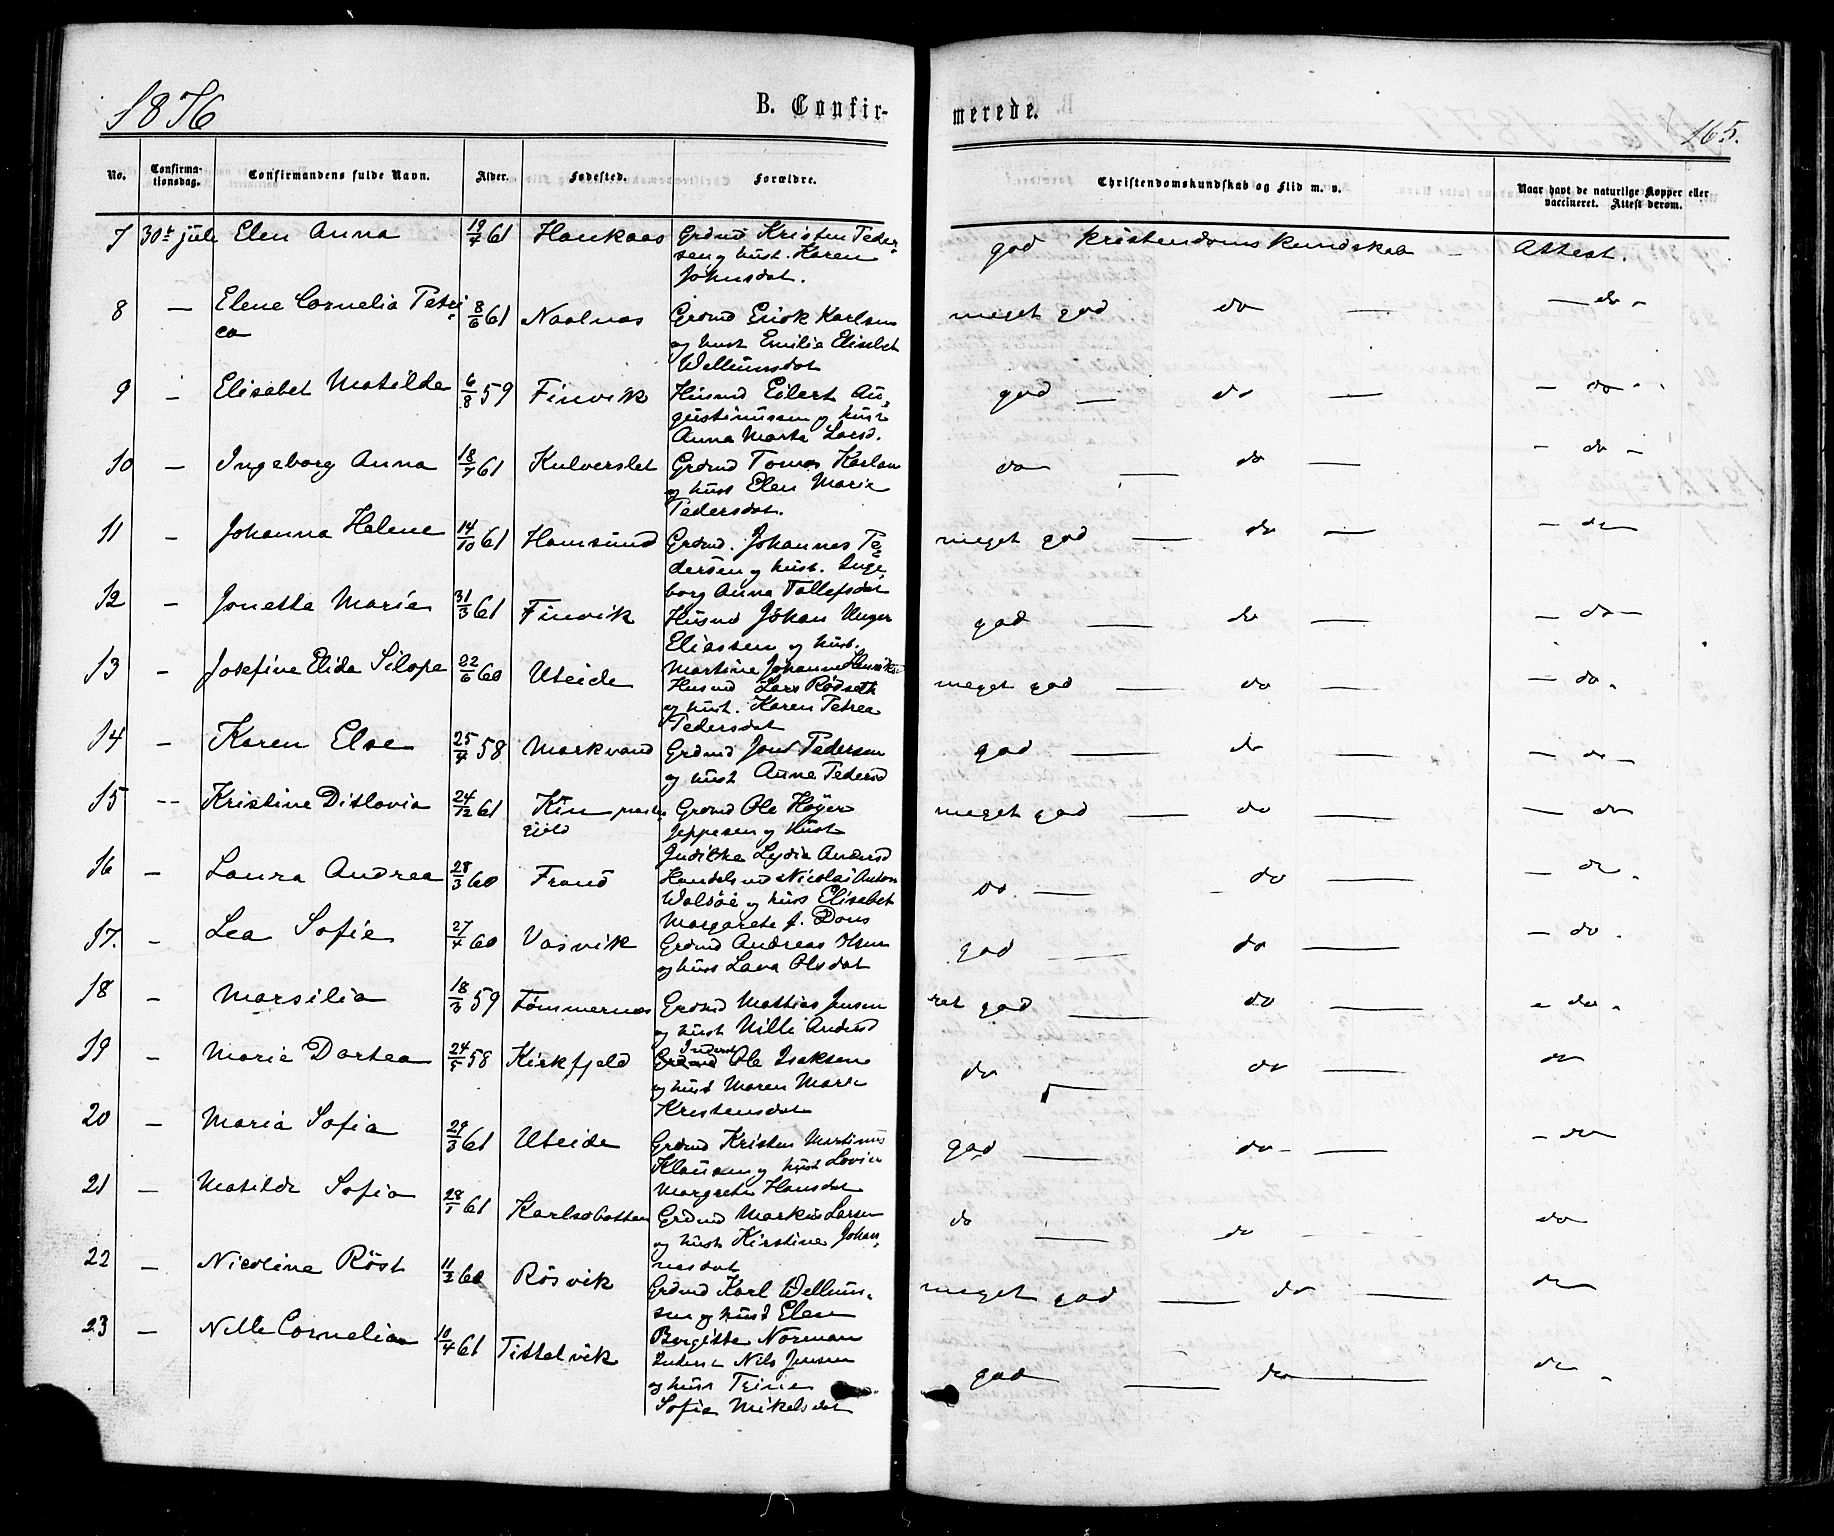 1876
B. Confir-
merede.
165.
No.
Confirma-
tionsdag.
Confirmandens fulde Navn.
Alder.
Fødested.
Forældre.
Christendomskundskab og Flid m. v.
Naar havt de naturlige Kopper eller
vaccineret. Attest derom.
7 30t juli Elen Anna 19/7 61 Haukaas Grdmd Kristen Peder-
sen og hust. Karen
Johnsdat.
god kristendomskundskab - Attest.
8 — Elene Cornelia Petri- 8/6 61 Naalnæs Grdmd Erik Karlsen
ca
og hust Emilie Elisabet
Wellumsdat
meget god do — — do -
9 - Elisabet Matilde 6/8 59 Finvik Husmd Eilert Au-
gustinussen og hust
Anna Marta Larsd.
god — do — - do -
10 — Ingeborg Anna 18/7 61 Kulverslet Grdmd Tomas Karlsen
og hust Elen Marie
Pedersdat.
do — do — - do -
11 - Johanna Helene 14/10 61 Hamsund Grdmd. Johannes Pe-
dersen og hust. Inge-
borg Anna Tollefsdat
meget god — do — - do
12 - Jonetta Marie 31/3 61 Finvik Husmd Johan Unger
Eliassen og hust.
Martine Johanna
god — do — - do -
13 - Josefine Elida Silope 22/6 60 Uteide Husmd Lars Rödseth
og hust. Karen Petrea
Pedersdat
meget god — do — - do.
14 - Karen Else 25/4 58 Markvand Grdmd Jont Pedersen
og hust Anne Pedersd
god — do — - do -
15 -- Kristine Ditlovia 24/12 61 Kin præste Grdmd Ole Höyer
gjeld
Jeppesen og hust
Judithe Lydia Andersd
meget god — do — - do
16 - Laura Andrea 28/3 60 Frand Handelsmd Nicolai Anton
Walsöe og hus Elisabet
Margarete f. Dons
do. — - do — - do.
17. - Lea Sofie 27/4 60 Vasvik Grdmd Andreas Olsen
og hust Lava Olsdat
god — do — - do.
18 - Marsilia 18/3 59 Tømmernæs Grdmd Mathias Jensen
og hust Nille Andersd
ret god — do — - do -
19 - Marie Dortea 24/5 58 Kirkfjeld Inderst Ole Isaksen
og hust Maren Marie
Kristensdat
do — do — do
20 - Maria Sofia 29/3 61 Uteide Grdmd Kristen Martinus
Klausen og hust Lovise
Margrete Hansdat
god — do - — - do
21 - Matilde Sofia 28/1 61 Karlsobotten Grdmd Markus Larsen
og hust Kirstine Johan-
nesdat
do — do — do
22 - Nicoline Röst 11/2 60 Rösvik Grdmd Karl Wellum-
sen og hust Elen
Bergitte Norman
meget god — do — do
23 - Nille Cornelia 10/4 61 Tittelvik Inderst Nils Jensen
og hust Trine
Sofia Mikelsdat
god — do — do -